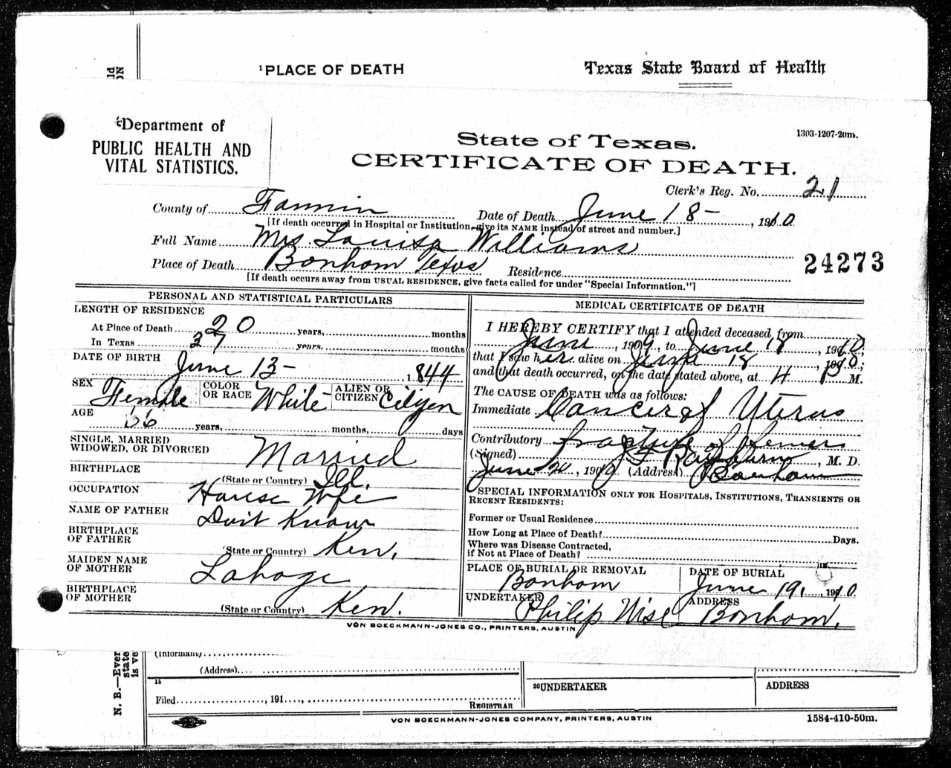 ¹PLACE OF DEATH
Texas State Board of Health
Department of
PUBLIC HEALTH AND
VITAL STATISTICS.
1303-1207-20m.
State of Texas.
CERTIFICATE OF DEATH.
Clerk's Reg. No. 21
County of Fannin Date of Death June 18- , 1910
[If death occurred in Hospital or Institution give its NAME instead of street and number.]
Full Name Mrs Louisa Williams
24273
Place of Death Bonham Texas Residence
[If death occurs away from USUAL RESIDENCE, give facts called for under "Special Information."]
PERSONAL AND STATISTICAL PARTICULARS
LENGTH OF RESIDENCE
At Place of Death 20 years, months
In Texas 37 years, months
DATE OF BIRTH
June 13- 1844
SEX Female COLOR OR RACE White ALIEN OR CITIZEN Citizen
AGE
66 years, months, days
SINGLE, MARRIED
WIDOWED, OR DIVORCED Married
BIRTHPLACE
(State or Country) Ill.
OCCUPATION House Wife
NAME OF FATHER Dont Know
BIRTHPLACE
OF FATHER
(State or Country) Ken.
MAIDEN NAME
OF MOTHER
BIRTHPLACE
OF MOTHER
(State or Country) Ken.
MEDICAL CERTIFICATE OF DEATH
I HEREBY CERTIFY that I attended deceased from
June , 1909, to June 18 , 1910,
that I saw her alive on June 18 , 1910,
and that death occurred, on the date stated above, at 4 P M.
The CAUSE OF DEATH was as follows:
Immediate Cancer of Uterus
Contributory fracture of
(Signed) , M. D.
June , 1910 (Address) Bonham
SPECIAL INFORMATION ONLY FOR HOSPITALS, INSTITUTIONS, TRANSIENTS OR
RECENT RESIDENTS:
Former or Usual Residence
How Long at Place of Death? Days.
Where was Disease Contracted,
if Not at Place of Death?
PLACE OF BURIAL OR REMOVAL
Bonham
DATE OF BURIAL
June 19, 1910
UNDERTAKER
Philip Wise
ADDRESS
Bonham.
VON BOECKMANN-JONES CO., PRINTERS, AUSTIN
N. B.—Ever
state
is ver
(Informant)
(Address)
Filed , 191
REGISTRAR
²⁰UNDERTAKER
ADDRESS
VON BOECKMANN-JONES COMPANY, PRINTERS, AUSTIN
1584-410-50m.